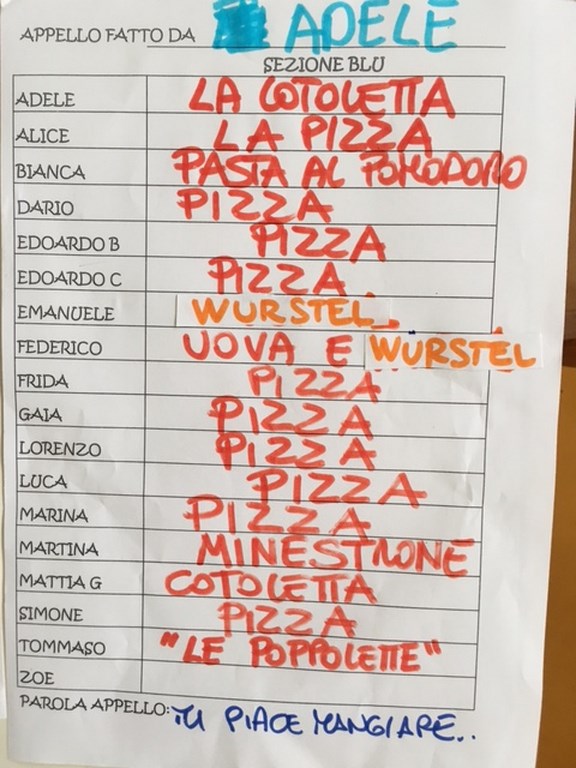 APPELLO FATTO DA ADELE
SEZIONE BLU
ADELE LA COTOLETTA
ALICE LA PIZZA
BIANCA PASTA AL POMODORO
DARIO PIZZA
EDOARDO B PIZZA
EDOARDO C PIZZA
EMANUELE WURSTEL
FEDERICO UOVA E WURSTEL
FRIDA PIZZA
GAIA PIZZA
LORENZO PIZZA
LUCA PIZZA
MARINA PIZZA
MARTINA MINESTRONE
MATTIA G COTOLETTA
SIMONE PIZZA
TOMMASO "LE POPPOLETTE"
ZOE
PAROLA APPELLO: TU PIACE MANGIARE..